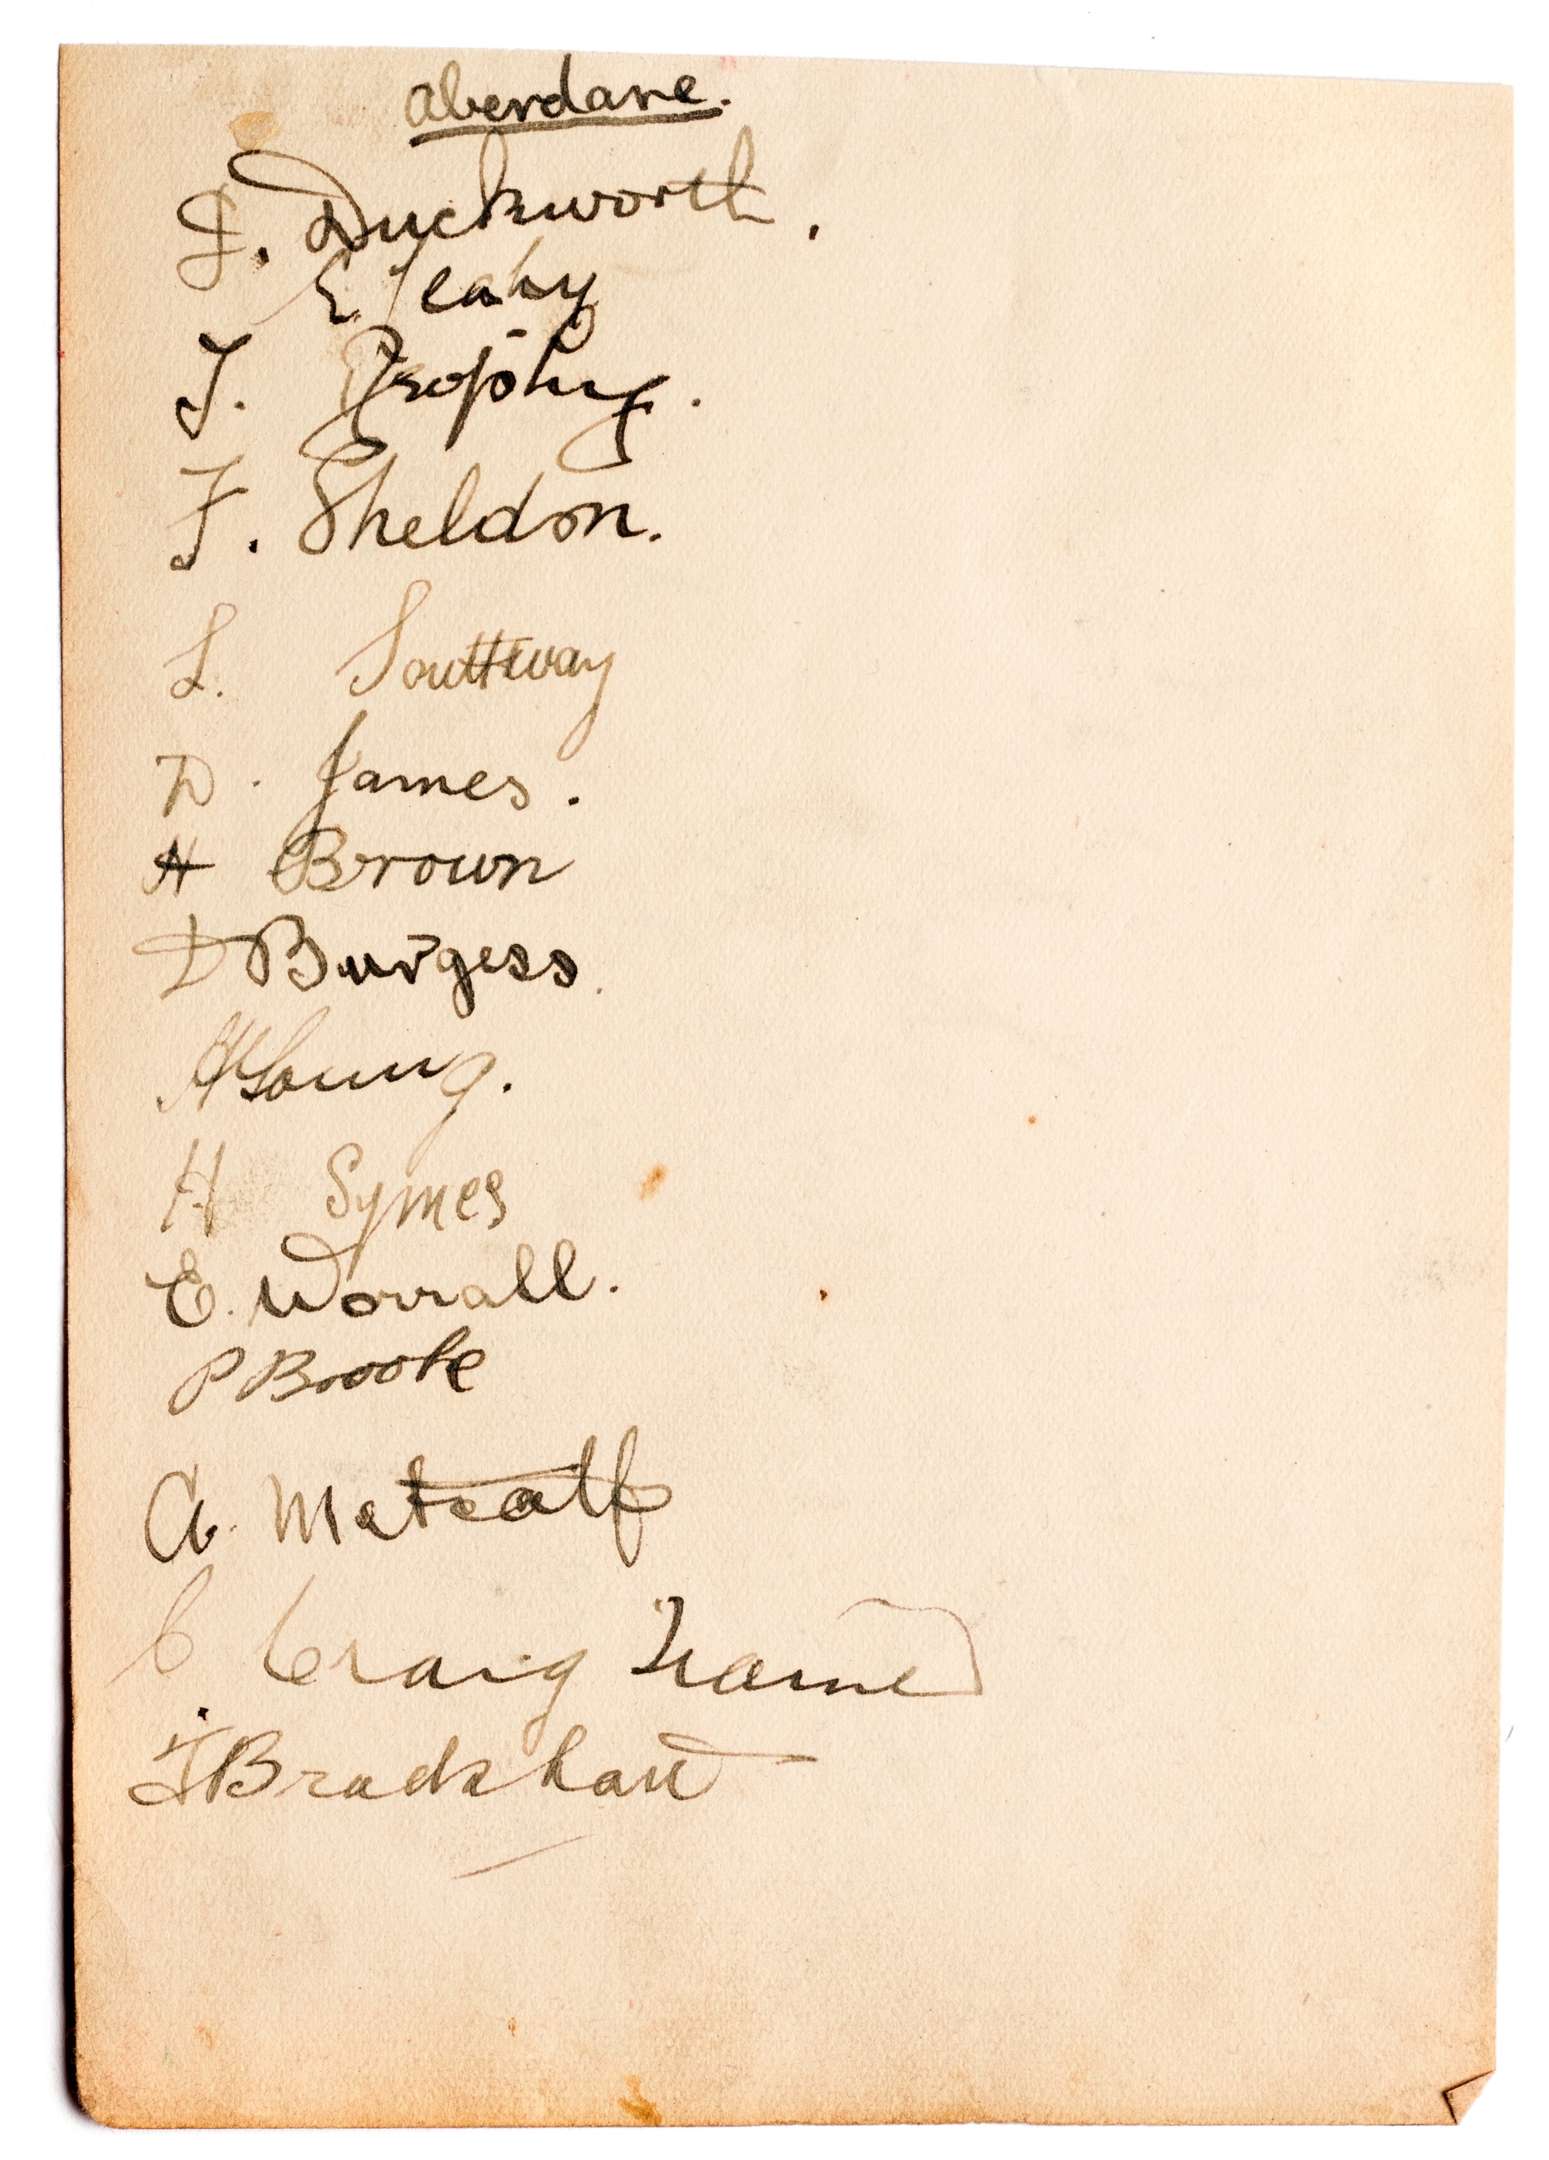 Aberdare.
J. Duckworth.
E. Leahy
T. Brophy.
F. Sheldon.
S. Southway
D. James.
H Brown
D Burgess.
H Young.
H Symes
E. Worrall.
P Brooke
A. Metcalf
C. Craig Trainer